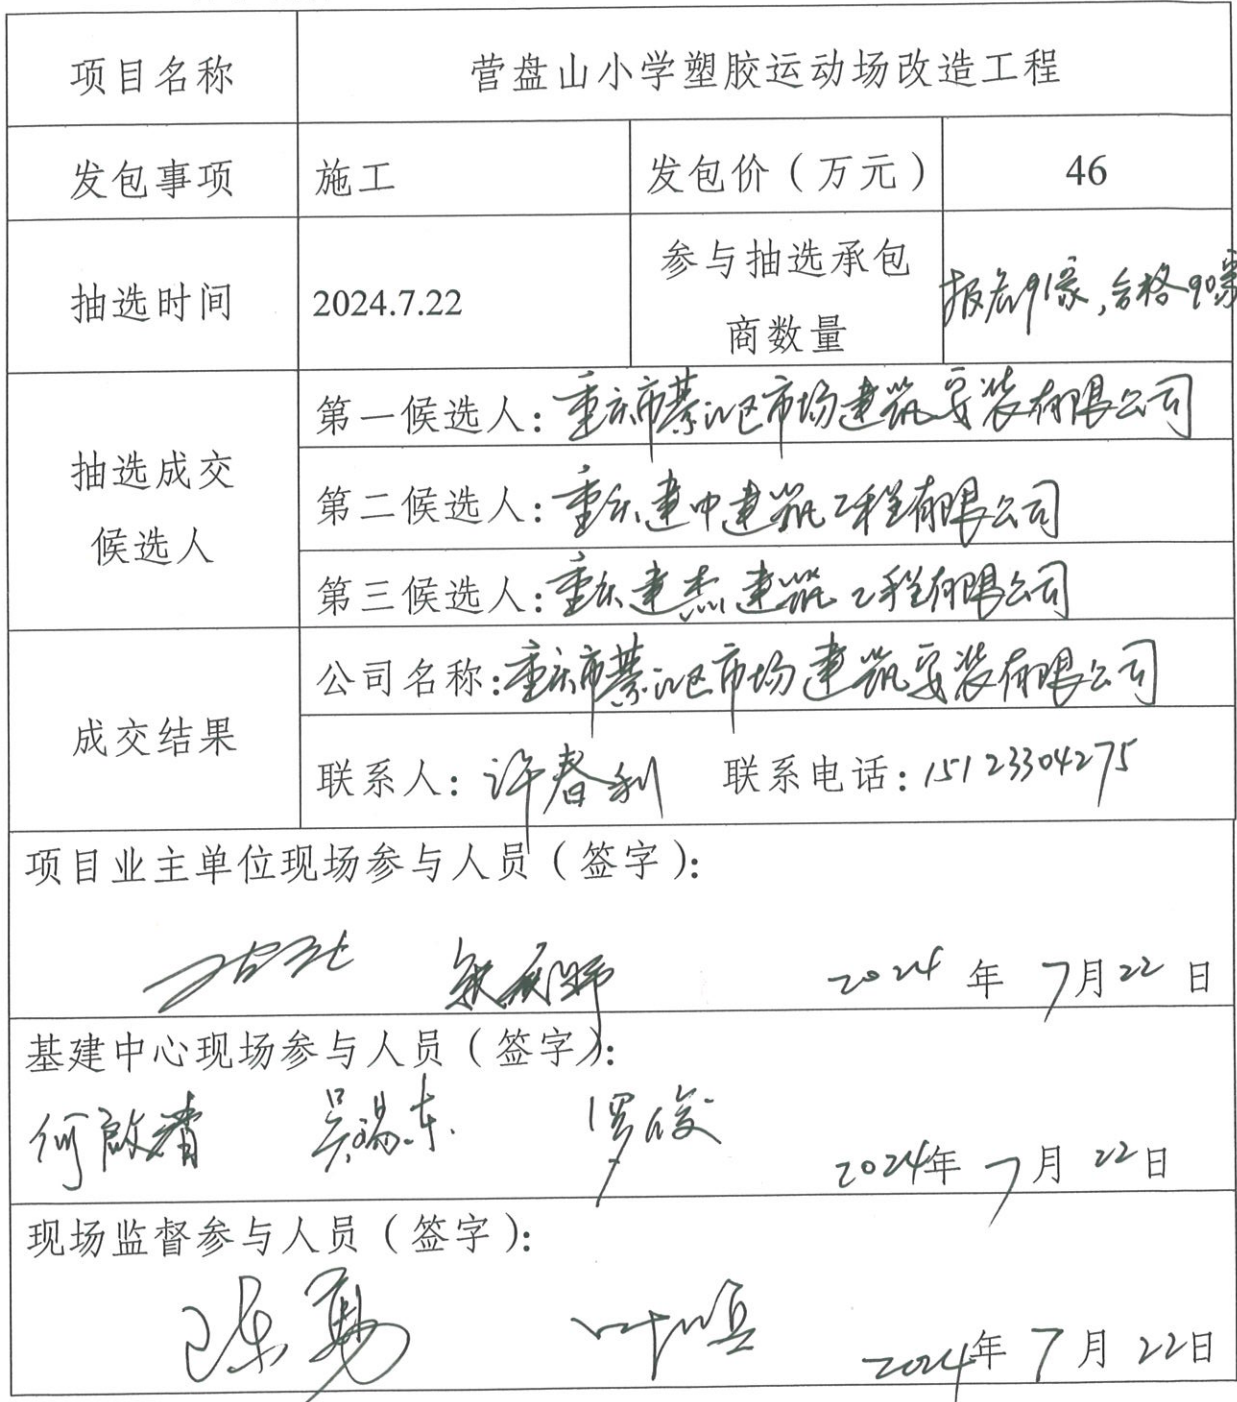 项目名称 营盘山小学塑胶运动场改造工程
发包事项 施工 发包价（万元） 46
抽选时间 2024.7.22 参与抽选承包
商数量 报名91家,合格90家
抽选成交
候选人
第一候选人:重庆市綦江区市场建筑安装有限公司
第二候选人:重庆建中建筑工程有限公司
第三候选人:重庆建杰建筑工程有限公司
成交结果
公司名称:重庆市綦江区市场建筑安装有限公司
联系人: 许春利 联系电话: 15123304275
项目业主单位现场参与人员（签字）:
2024 年 7月22日
基建中心现场参与人员（签字）:
罗俊
2024年 7月 22日
现场监督参与人员（签字）:
陈勇
2024年 7月 22日